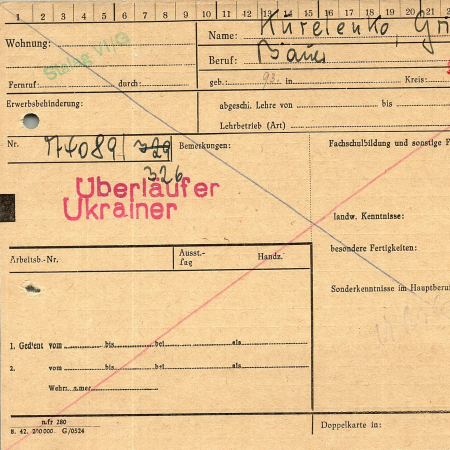 1 2 3 4 5 6 7 8 9 10 11 12 13 14 15 16 17 18 19 20 21
Stalag VI/G
Wohnung:
Name: Kurelenko, Gri
Beruf: Bauer
Fernruf: durch:
geb.: 93. in Kreis:
Erwerbsbehinderung:
abgeschl. Lehre von bis
Lehrbetrieb (Art)
Nr. 74089/ 329 Bemerkungen:
326
Fachschulbildung und sonstige F
Überläufer
Ukrainer
landw. Kenntnisse:
besondere Fertigkeiten:
Arbeitsb.-Nr. Ausst.-Tag Handz.
Sonderkenntnisse im Hauptberu
1. Gedient vom bis bei als
2. vom bis bei als
Wehrnummer
n/fr 280
8. 42. 200000 G/0524
Doppelkarte in: